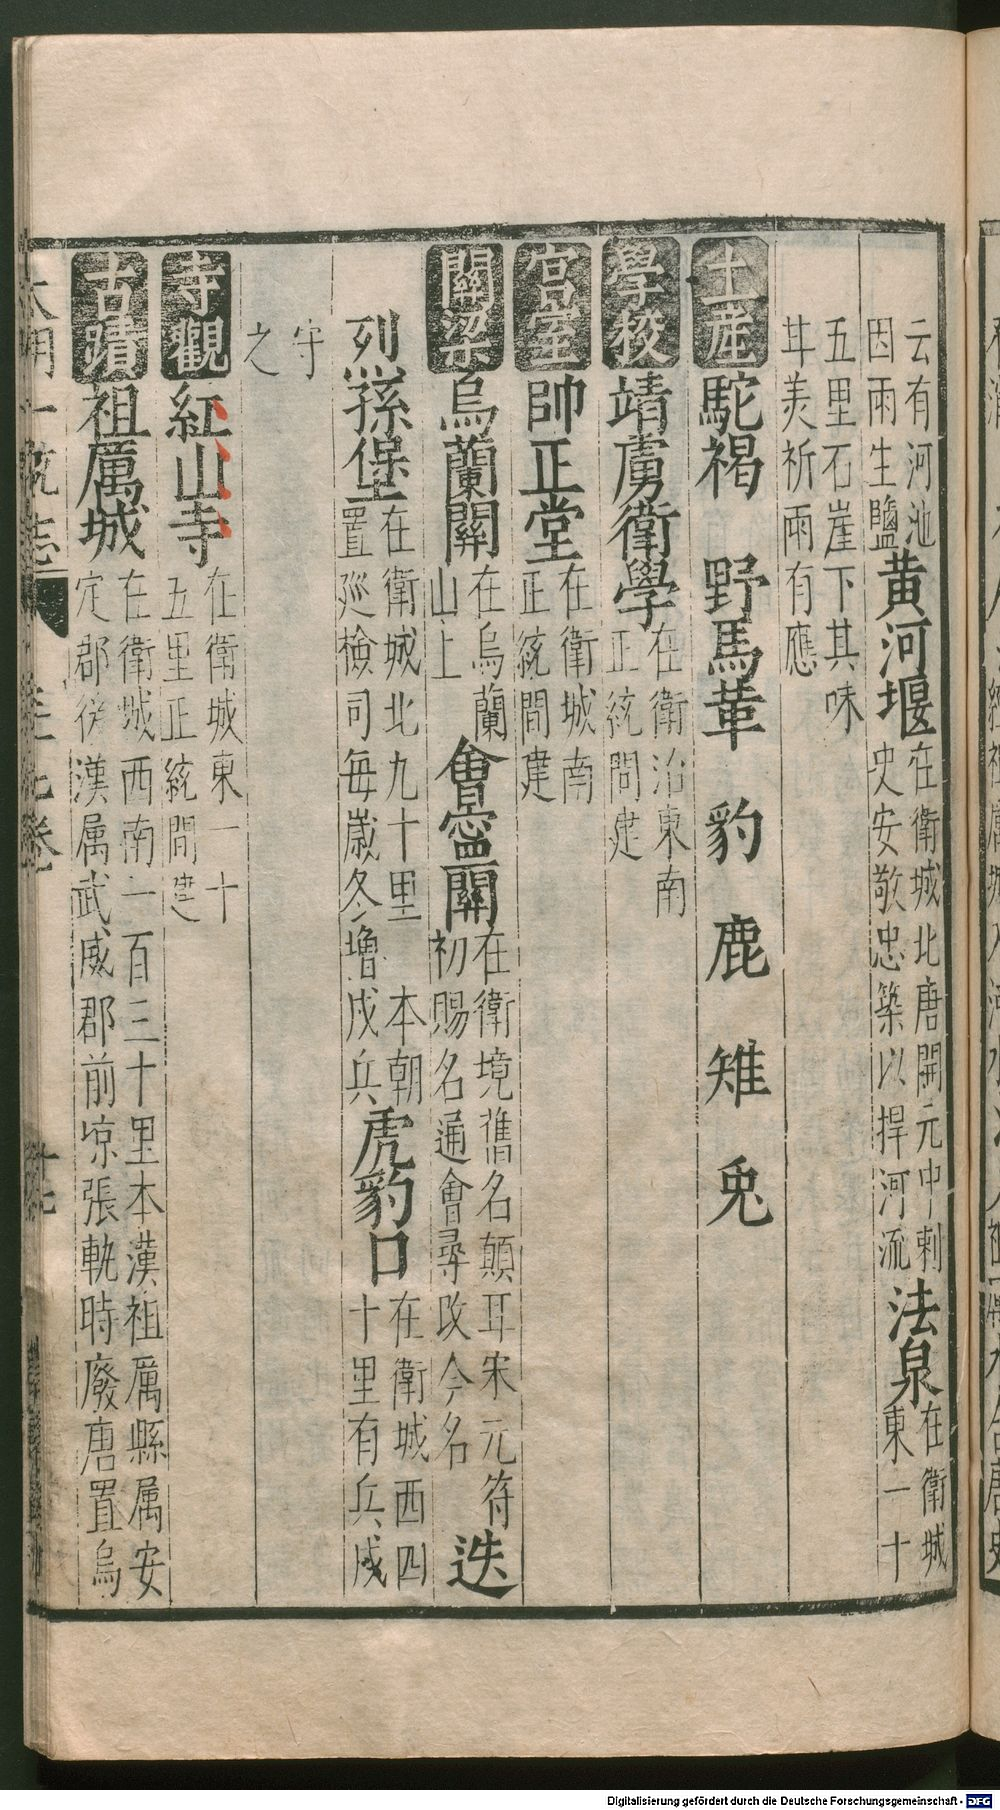 云有河池
因雨生鹽
黃河堰
在衛城北唐開元中刺
史安敬忠築以捍河流
法泉
在衛城
東一十
五里石崖下其味
甘美祈雨有應
土產
駝褐 野馬革 豹 鹿 雉 兎
學校
靖虜衛學
在衛治東南
正統間建
宮室
帥正堂
在衛城南
正統間建
關梁
烏蘭關
在烏蘭
山上
會寧關
在衛境舊名顛耳宋元符
初賜名通會尋改今名
迭
烈孫堡
在衛城北九十里 本朝
置廵檢司每歲冬增戍兵
虎豹口
在衛城西四
十里有兵戍
守
之
寺觀
紅山寺
在衛城東一十
五里正統間建
古蹟
祖厲城
在衛城西南一百三十里本漢祖厲縣属安
定郡後漢属武威郡前凉張軌時廢唐置烏
大明一統志
卷
十七
Digitalisierung gefördert durch die Deutsche Forschungsgemeinschaft - DFG